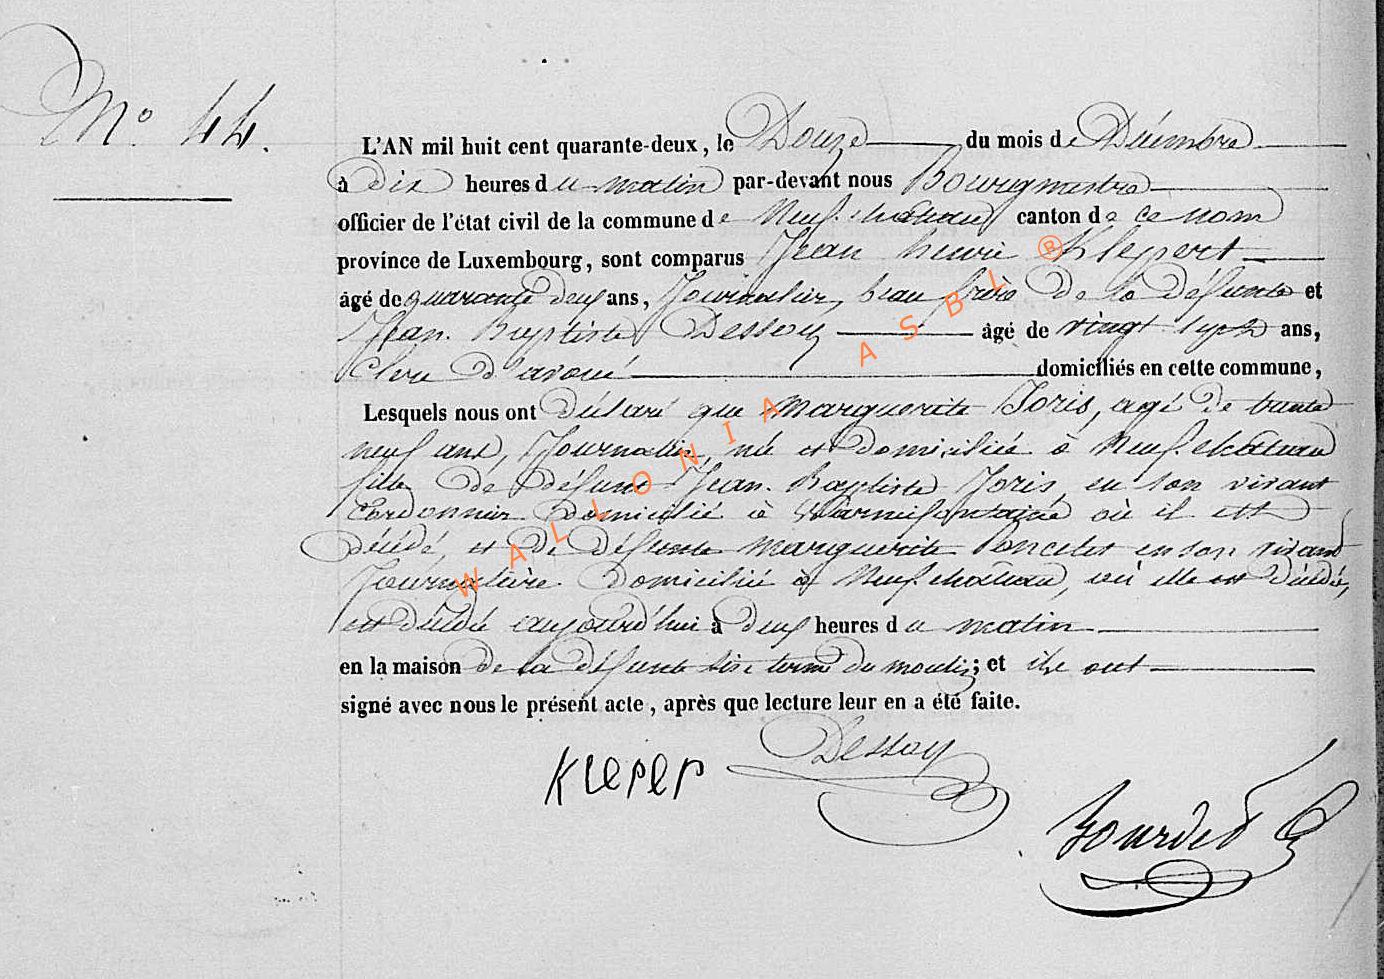 N° 44.
L'AN mil huit cent quarante-deux, le Douze du mois de Décembre
à dix heures du matin par-devant nous Bourgmestre
officier de l'état civil de la commune de Neufchâteau canton de ce nom
province de Luxembourg, sont comparus Jean henri Klepert
âgé de quarante deux ans, Journalier, beau frère de la défunte et
Jean Baptiste Dessoy âgé de vingt sept ans,
Clerc d'avoué domiciliés en cette commune,
Lesquels nous ont déclaré que Marguerite Joris, agé de trente
neuf ans, Journalière, née et domiciliée à Neufchâteau
fille de défunt Jean Baptiste Joris, en son vivant
Cordonnier domicilié à où il est
décédé, et de défunte Marguerite Poncelet en son vivant
Journalière domiciliée à Neufchâteau, où elle est décédée,
est décédée aujourd'hui à deux heures du matin
en la maison de la défunte sise du moulin; et ils ont
signé avec nous le présent acte, après que lecture leur en a été faite.
Dessoy
Kleper
Bourdet
WALLONIA ASBL ®